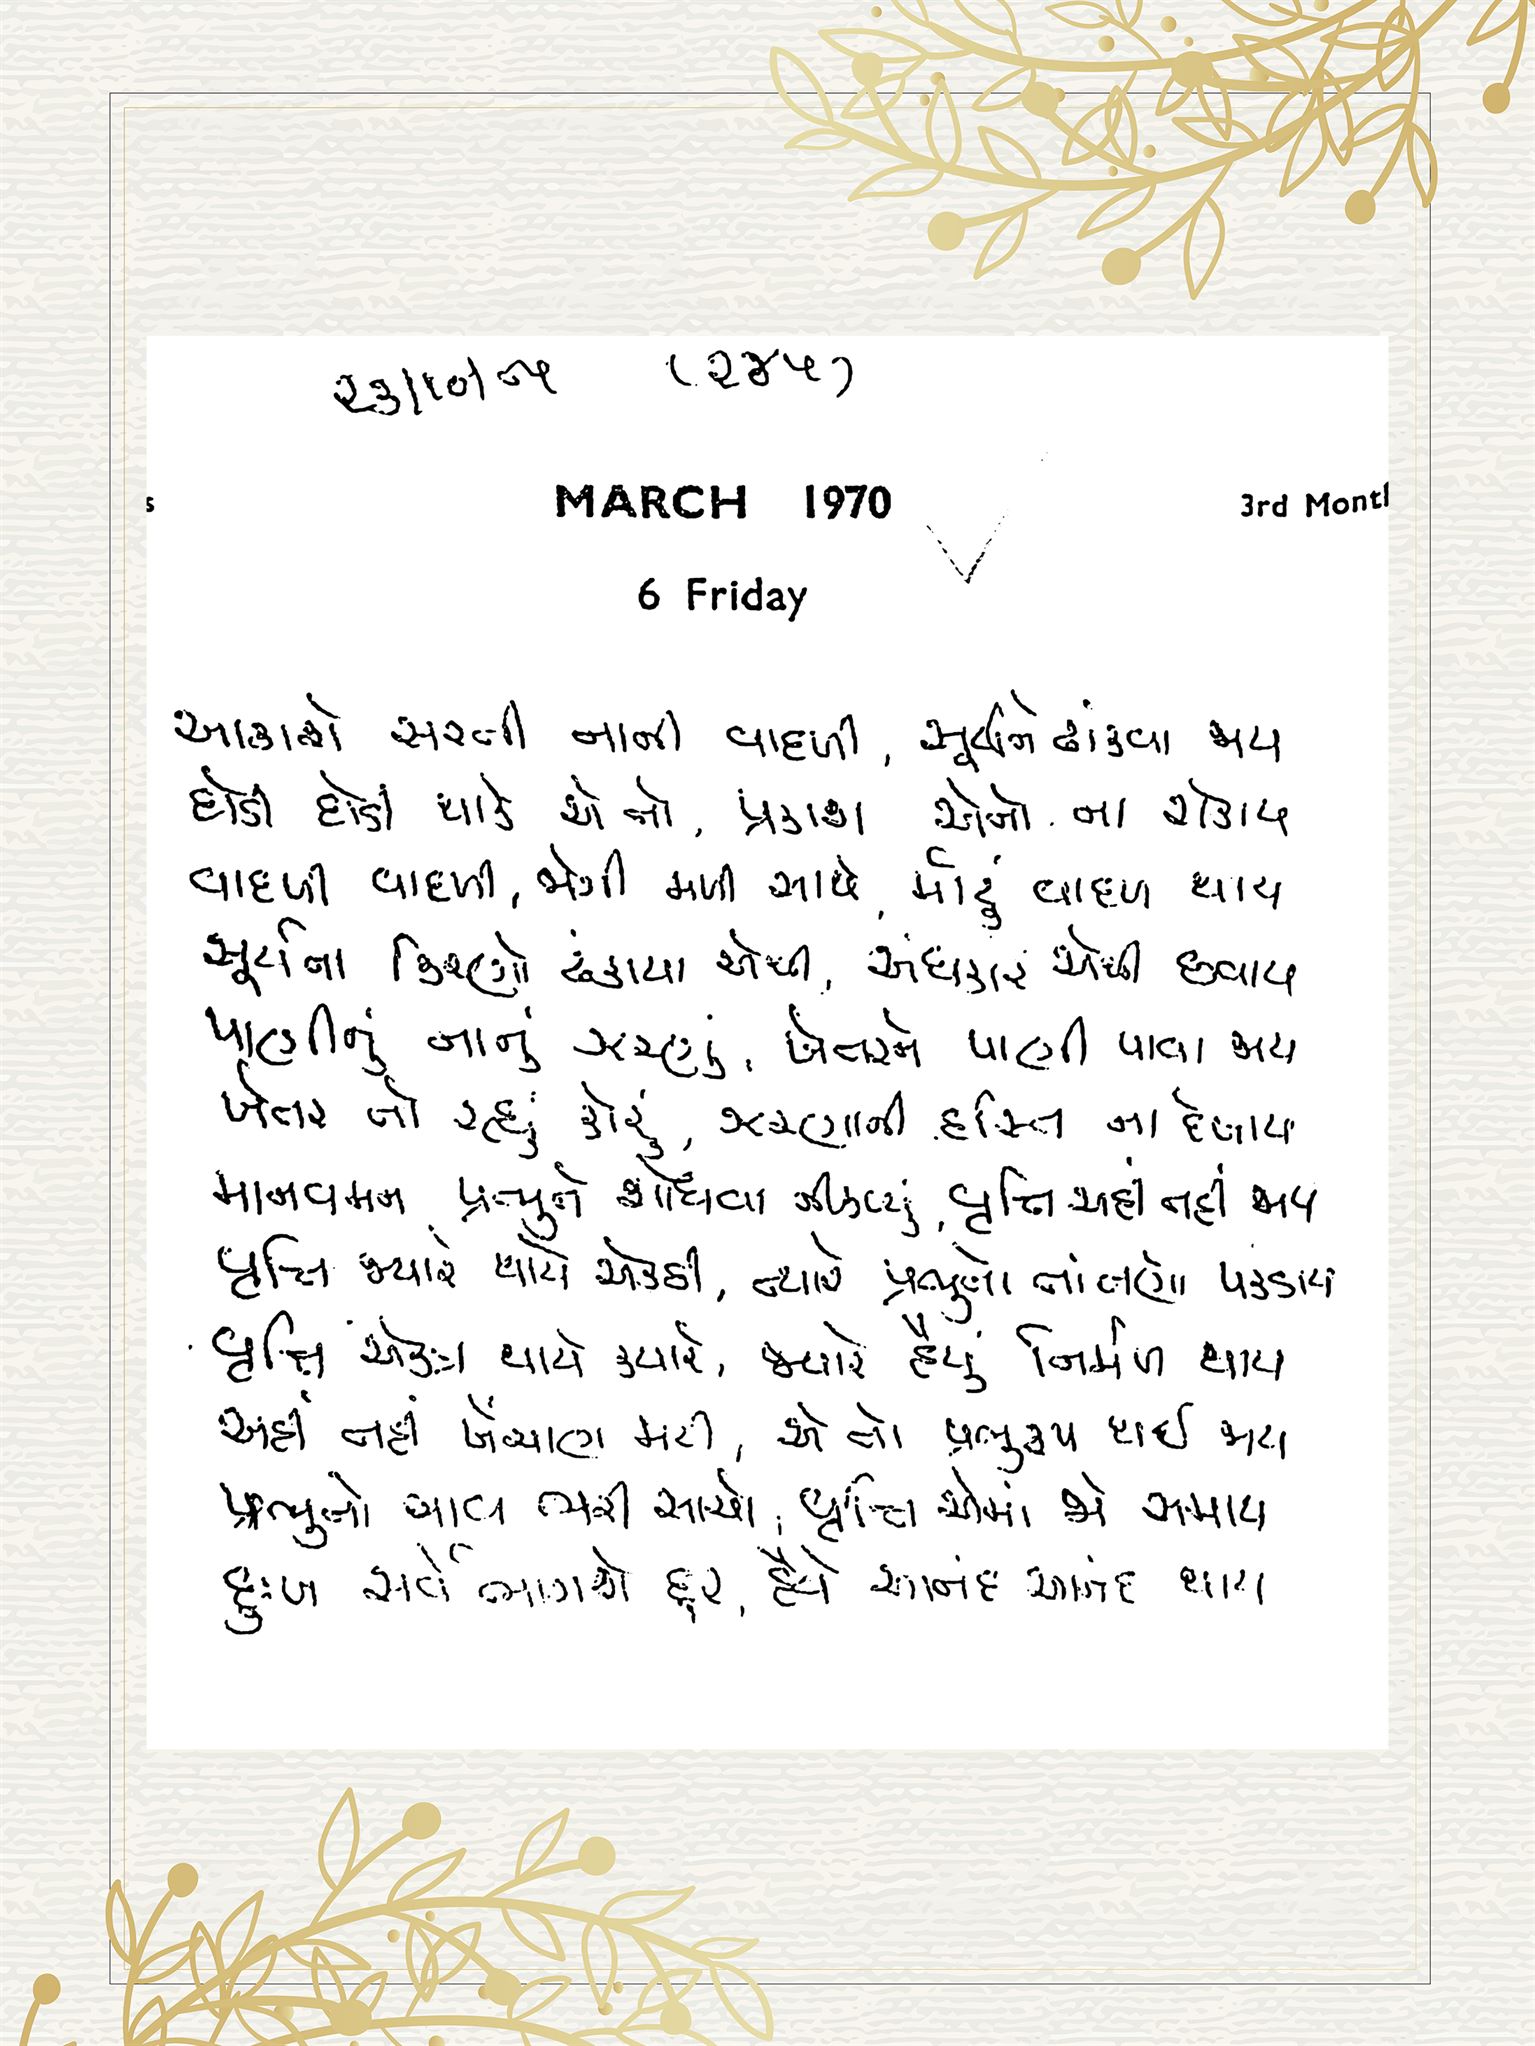 ૨૩/૧૦/૭૫ (૨૪૫)
s MARCH 1970 3rd Month
6 Friday
આકાશે સરતી નાની વાદળી, સૂર્યને ઢાંકવા જાય
દોડી દોડી થાકે એ તો, પ્રકાશ એનો ના રોકાય
વાદળી વાદળી, ભેગી મળી સાથે, મોટું વાદળ થાય
સૂર્યના કિરણો ઢંકાયા એથી, અંધકાર એથી છવાય
પાણીનું નાનું ઝરણું, ખેતરને પાણી પાવા જાય
ખેતર તો રહ્યું કોરું, ઝરણાની હસ્તિ ના દેખાય
માનવમન પ્રભુને શોધવા નીકળ્યું, વૃત્તિ અહીં નહીં જાય
વૃત્તિ જ્યારે થાયે એકઠી, ત્યારે પ્રભુનો તાંતણો પકડાય
વૃત્તિ એકઠી થાયે ક્યારે, જ્યારે હૈયું નિર્મળ થાય
અહીં નહીં ખેંચાણ મટી, એ તો પ્રભુરૂપ થઈ જાય
પ્રભુનો ભાવ ભરી સાચો, વૃત્તિ એમાં જો સમાય
દુઃખ સર્વે ભાગશે દૂર, હૈયે આનંદ આનંદ થાય